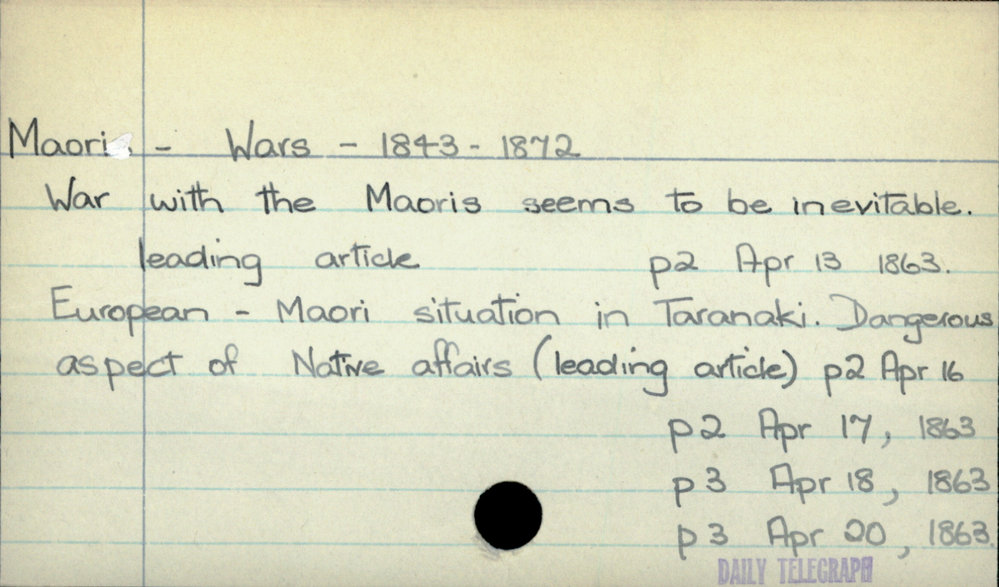 Maori - Wars - 1843 - 1872
War with the Maoris seems to be inevitable.
leading article p2 Apr 13 1863.
European - Maori situation in Taranaki. Dangerous
aspect of Native affairs (leading article) p2 Apr 16
p2 Apr 17, 1863
p3 Apr 18, 1863
p3 Apr 20, 1863.
DAILY TELEGRAPH